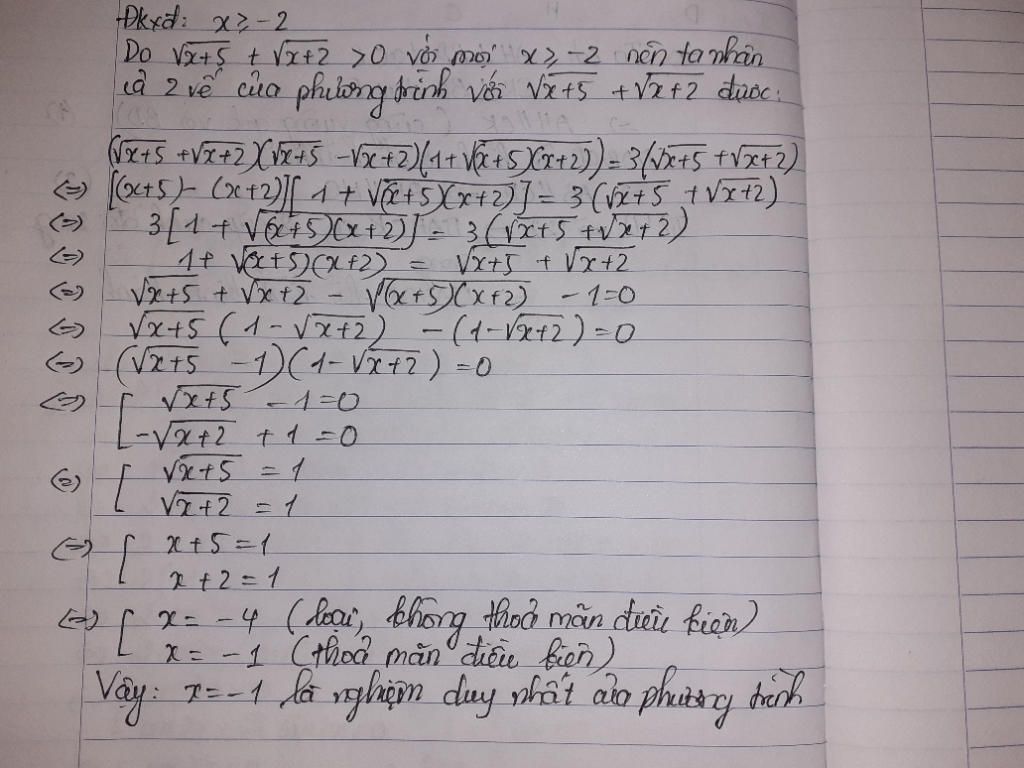 Đkxđ: x ≥ -2
Do √(x+5) + √(x+2) > 0 với mọi x ≥ -2 nên ta nhân
cả 2 vế của phương trình với √(x+5) + √(x+2) được:
(√(x+5) + √(x+2))(√(x+5) - √(x+2))(1+√((x+5)(x+2))) = 3(√(x+5) + √(x+2))
<=> [(x+5) - (x+2)][1 + √((x+5)(x+2))] = 3(√(x+5) + √(x+2))
<=> 3[1 + √((x+5)(x+2))] = 3(√(x+5) + √(x+2))
<=> 1 + √((x+5)(x+2)) = √(x+5) + √(x+2)
<=> √(x+5) + √(x+2) - √((x+5)(x+2)) - 1 = 0
<=> √(x+5) (1 - √(x+2)) - (1 - √(x+2)) = 0
<=> (√(x+5) - 1)(1 - √(x+2)) = 0
<=> [ √(x+5) - 1 = 0
-√(x+2) + 1 = 0
<=> [ √(x+5) = 1
√(x+2) = 1
<=> [ x + 5 = 1
x + 2 = 1
<=> [ x = -4 (loại, không thoả mãn điều kiện)
x = -1 (thoả mãn điều kiện)
Vậy: x = -1 là nghiệm duy nhất của phương trình